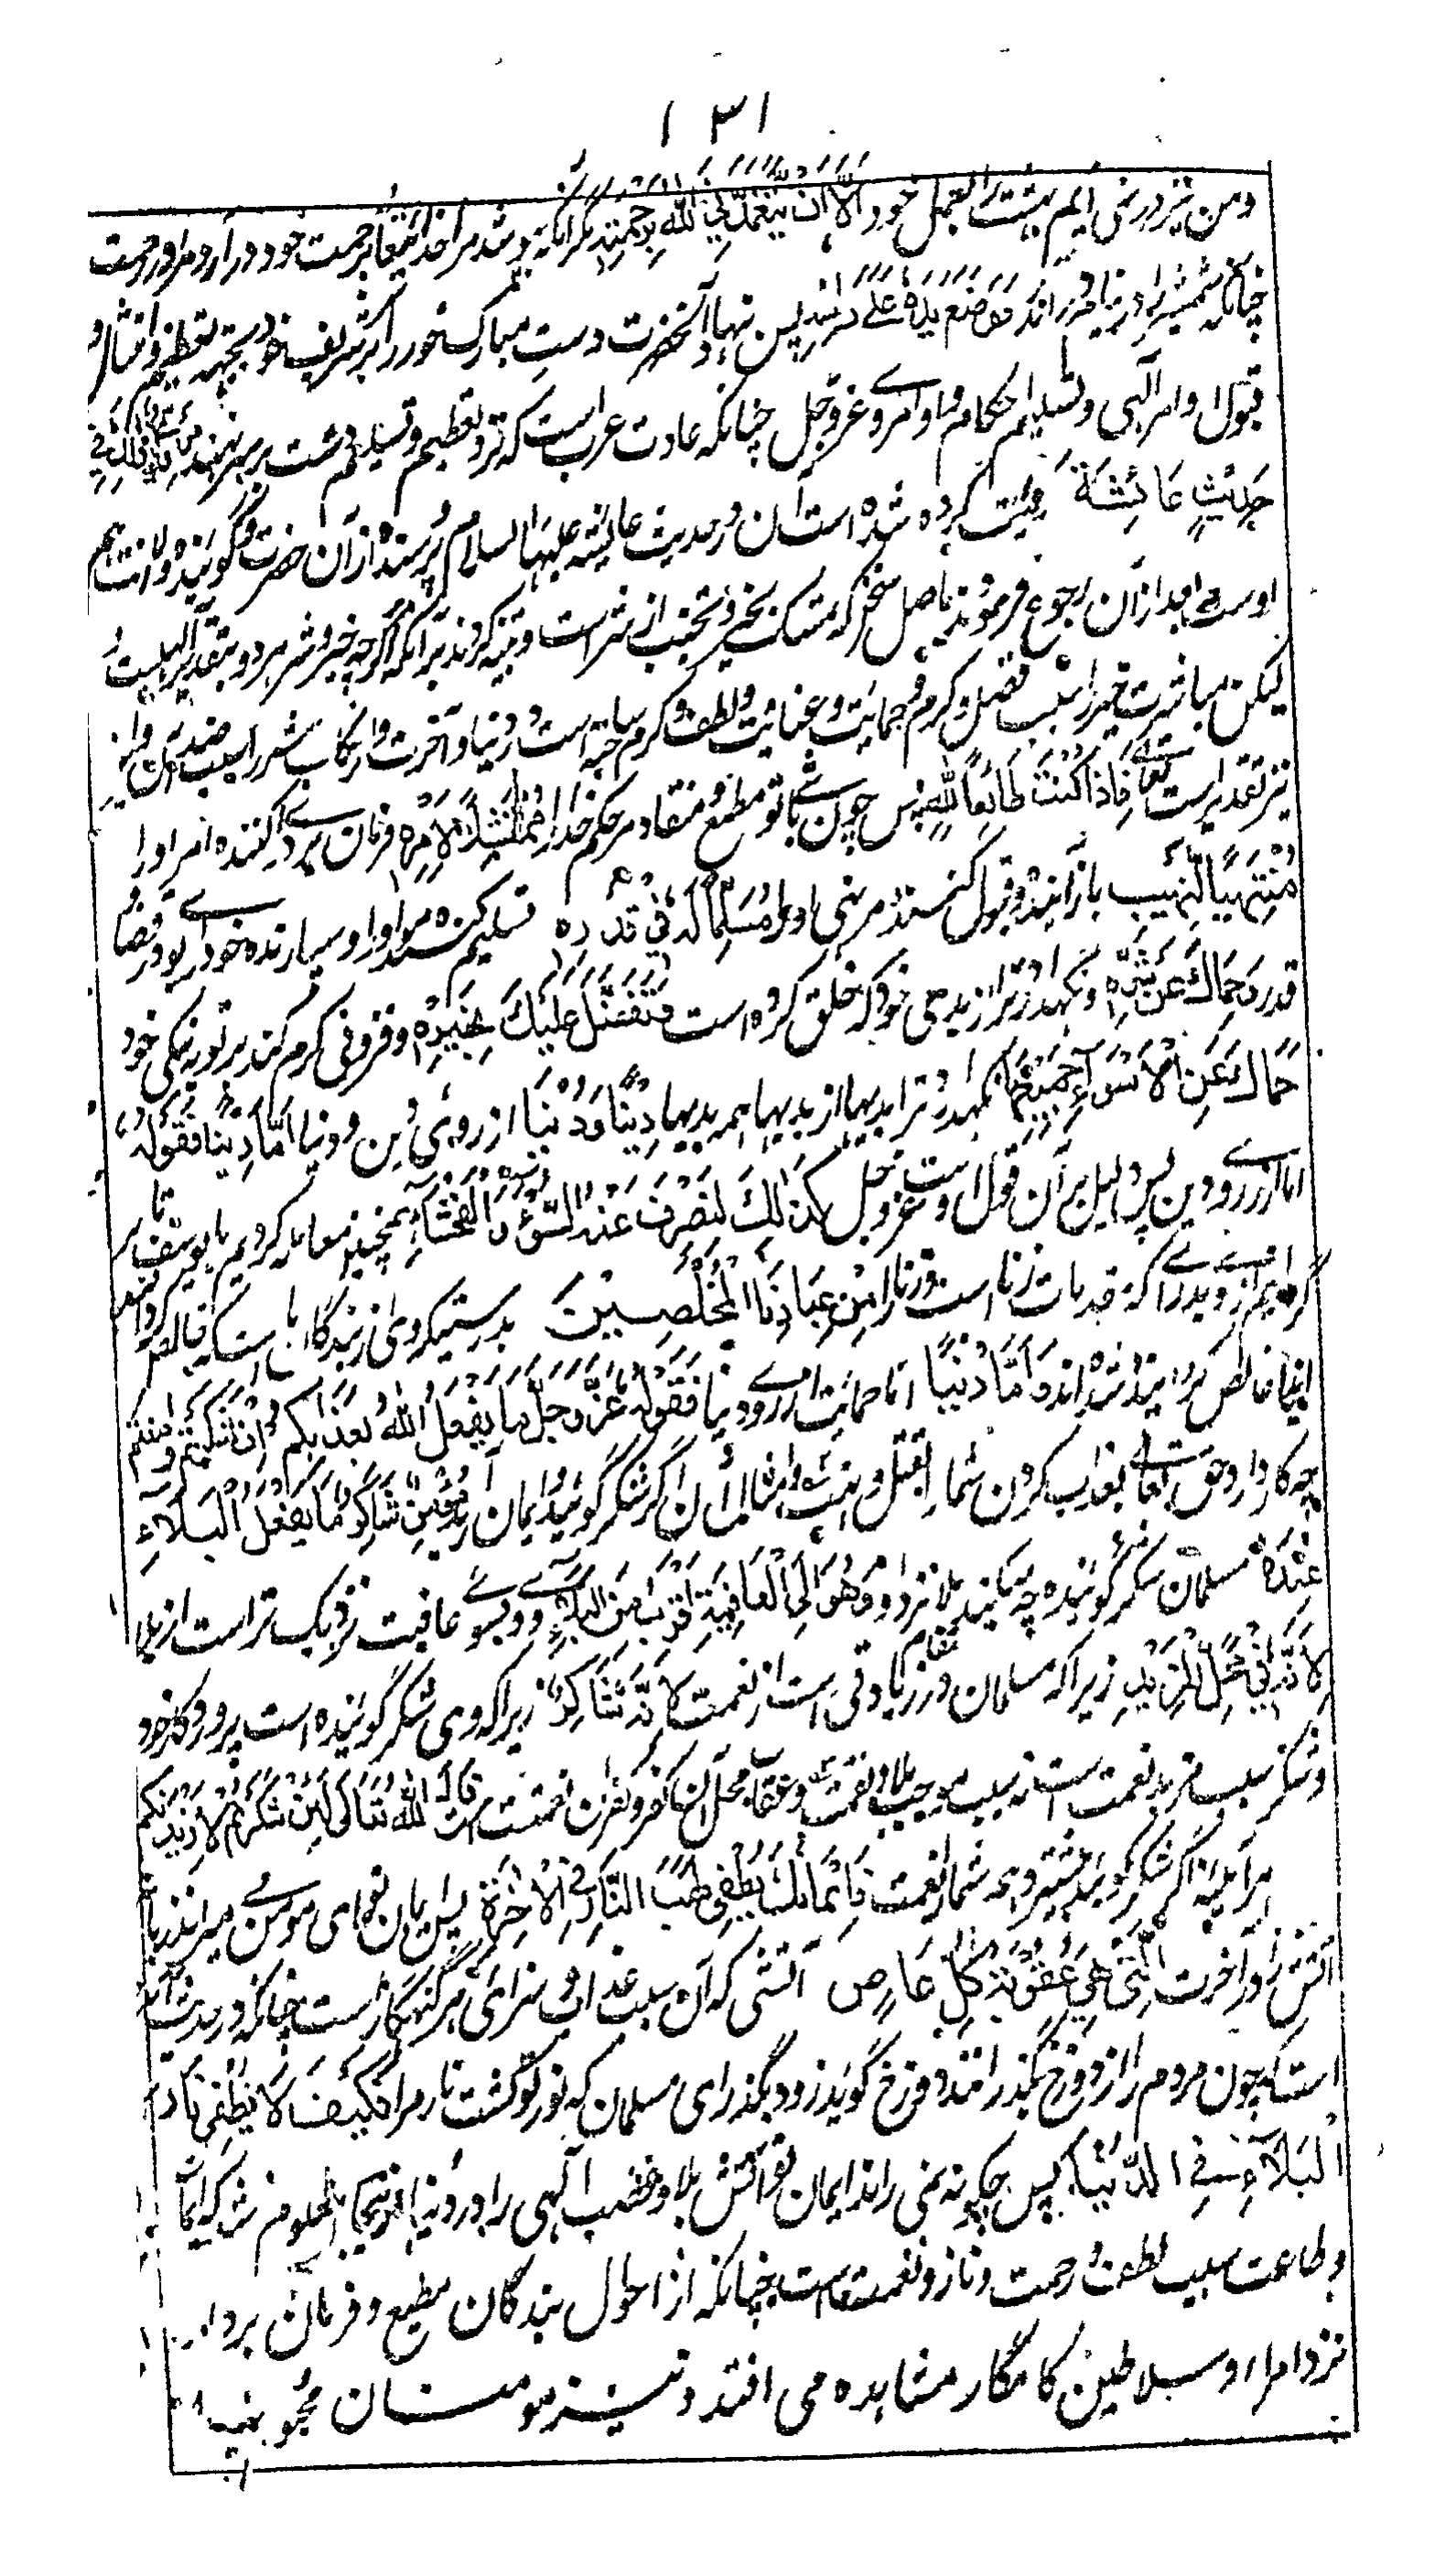 ۱۳۱
ومن نیز در نمی آیم بهشت را بعمل خود اِلَّا اَنْ یَّتَغَمَّدَنِیَ اللّٰهُ بِرَحْمَتِهٖ مگر آنکه بپوشد مرا خدایتعالی برحمت خود و در آرد مرا در رحمت
چنانکه شمشیر را در نیام در آرند فَوَضَعَ یَدَهٗ عَلٰی رَأْسِهٖ پس نهاد آنحضرت دست مبارک خود را بر سر شریف خود بجهت تعظیم و امتثال و
قبول اوامر الٰهی و تسلیم احکام و اوامر وے عز و جل چنانکه عادت عرب است که نزد تعظیم و تسلیم دست بر سر نهند
حَدِیْثِ عَائِشَةَ روایت کرده شده است آن در حدیث عایشه علیها السلام پرسنده از آن حضرت و گوینده ولا انت هم
اوست بعد از آن رجوع فرمودند باصل سخن که تمسک بخیر و تجنب از شر است و تنبیه کردند بر آنکه اگرچه خیر و شر هر دو بتقدیر الٰهیست
لیکن مباشرت خیر را سبب فضل و کرم و حمایت و عنایت و لطف و کرم ساخته است در دنیا و آخرت و ارتکاب شر را سبب ضد آن و این
نیز تقدیر است فَاِذَا کُنْتَ طَائِعًا لِلّٰهِ پس چون باشے تو مطیع و منقاد مر حکم خدا را مُمْتَثِلًا لِاَمْرِهٖ فرمان برداری کننده امر او را
مُنْتَهِیًا لِنَهْیِهٖ باز آینده و قبول کننده مر نهی او را مُسَلِّمًا لَهٗ فِیْ قَدَرِهٖ تسلیم کننده مر او را و سپارنده خود را بوے در قضا و
قدر وے حَمَاكَ عَنْ شَرِّهٖ و نگهدارد ترا از بدی خود که خلق کرده است وَتَفَضَّلَ عَلَیْكَ بِخَیْرِهٖ و فزونی و کرم کند بر تو به نیکی خود
حَمَاكَ عَنِ الْاَسْوَآءِ جَمِیْعًا نگهدارد ترا از بدیها همه بدیها دِیْنًا وَدُنْیَا از روی دین و دنیا اَمَّا دِیْنًا فَقَوْلُهٗ
اما از روے دین پس دلیل بر آن قول اوست عز و جل کَذٰلِكَ لِنَصْرِفَ عَنْهُ السُّوْءَ وَالْفَحْشَآءَ همچنین معامله کردیم با یوسف تا
گردانیم از وے بدی را که مقدمات زناست و زنا را اِنَّهٗ مِنْ عِبَادِنَا الْمُخْلَصِیْنَ بدرستیکه وی از بندگان ماست که خالص کرده
اینجا خالص گردانیده شده اند وَاَمَّا دُنْیَا اما حمایت از روے دنیا فَقَوْلُهٗ عَزَّ وَجَلَّ مَا یَفْعَلُ اللّٰهُ بِعَذَابِکُمْ اِنْ شَکَرْتُمْ وَاٰمَنْتُمْ
چه کار دارد حق تعالی بعذاب کردن شما بقتل و نهب و امثال آن اگر شکر گوئید و ایمان آرید مُؤْمِنٌ شَاکِرٌ مَا یَفْعَلُ الْبَلَآءُ
عِنْدَهٗ مسلمان شکر گوینده چه میکند بلا نزد او وَهُوَ اِلَی الْعَافِیَةِ اَقْرَبُ مِنَ الْبَلَآءِ و وے بسوے عافیت نزدیک تر است از بلا
لِاَنَّهٗ فِیْ مَحَلِّ الْمَزِیْدِ زیرا که مسلمان در مقام زیادتی است از نعمت لِاَنَّهٗ شَاکِرٌ زیرا که وی شکر گوینده است پروردگار خود
و شکر سبب مزید نعمت است نه سبب موجب بلا و نقمت و عقاب محل آنها کفر و کفران نعمت است قَالَ اللّٰهُ تَعَالٰی لَئِنْ شَکَرْتُمْ لَاَزِیْدَنَّکُمْ
هر آئینه اگر شکر گوئید بیشتر دهم شما را نعمت فَاِیْمَانُكَ یُطْفِئُ لَهَبَ النَّارِ فِی الْاٰخِرَةِ پس ایمان تو ای مومن میراند زبانه
آتش را در آخرت الَّتِیْ هِیَ عُقُوْبَةُ کُلِّ عَاصٍ آتشی که آن سبب عذاب و سزای هر گنهگار است چنانکه در حدیث آمده
است که چون مردم را از دوزخ بگذرانند دوزخ گوید زود بگذر ای مسلمان که نور تو کشت نار مرا فَکَیْفَ لَا یُطْفِئُ نَارَ
الْبَلَآءِ فِی الدُّنْیَا پس چگونه نمی راند ایمان تو آتش بلا و غضب الٰهی را در دنیا از اینجا معلوم شد که ایمان
و طاعت سبب لطف و رحمت و ناز و نعمت است چنانکه از احوال بندگان مطیع و فرمان بردار
نزد امراء و سلاطین کامگار مشاهده می افتد و نیز مومنان محبوبند